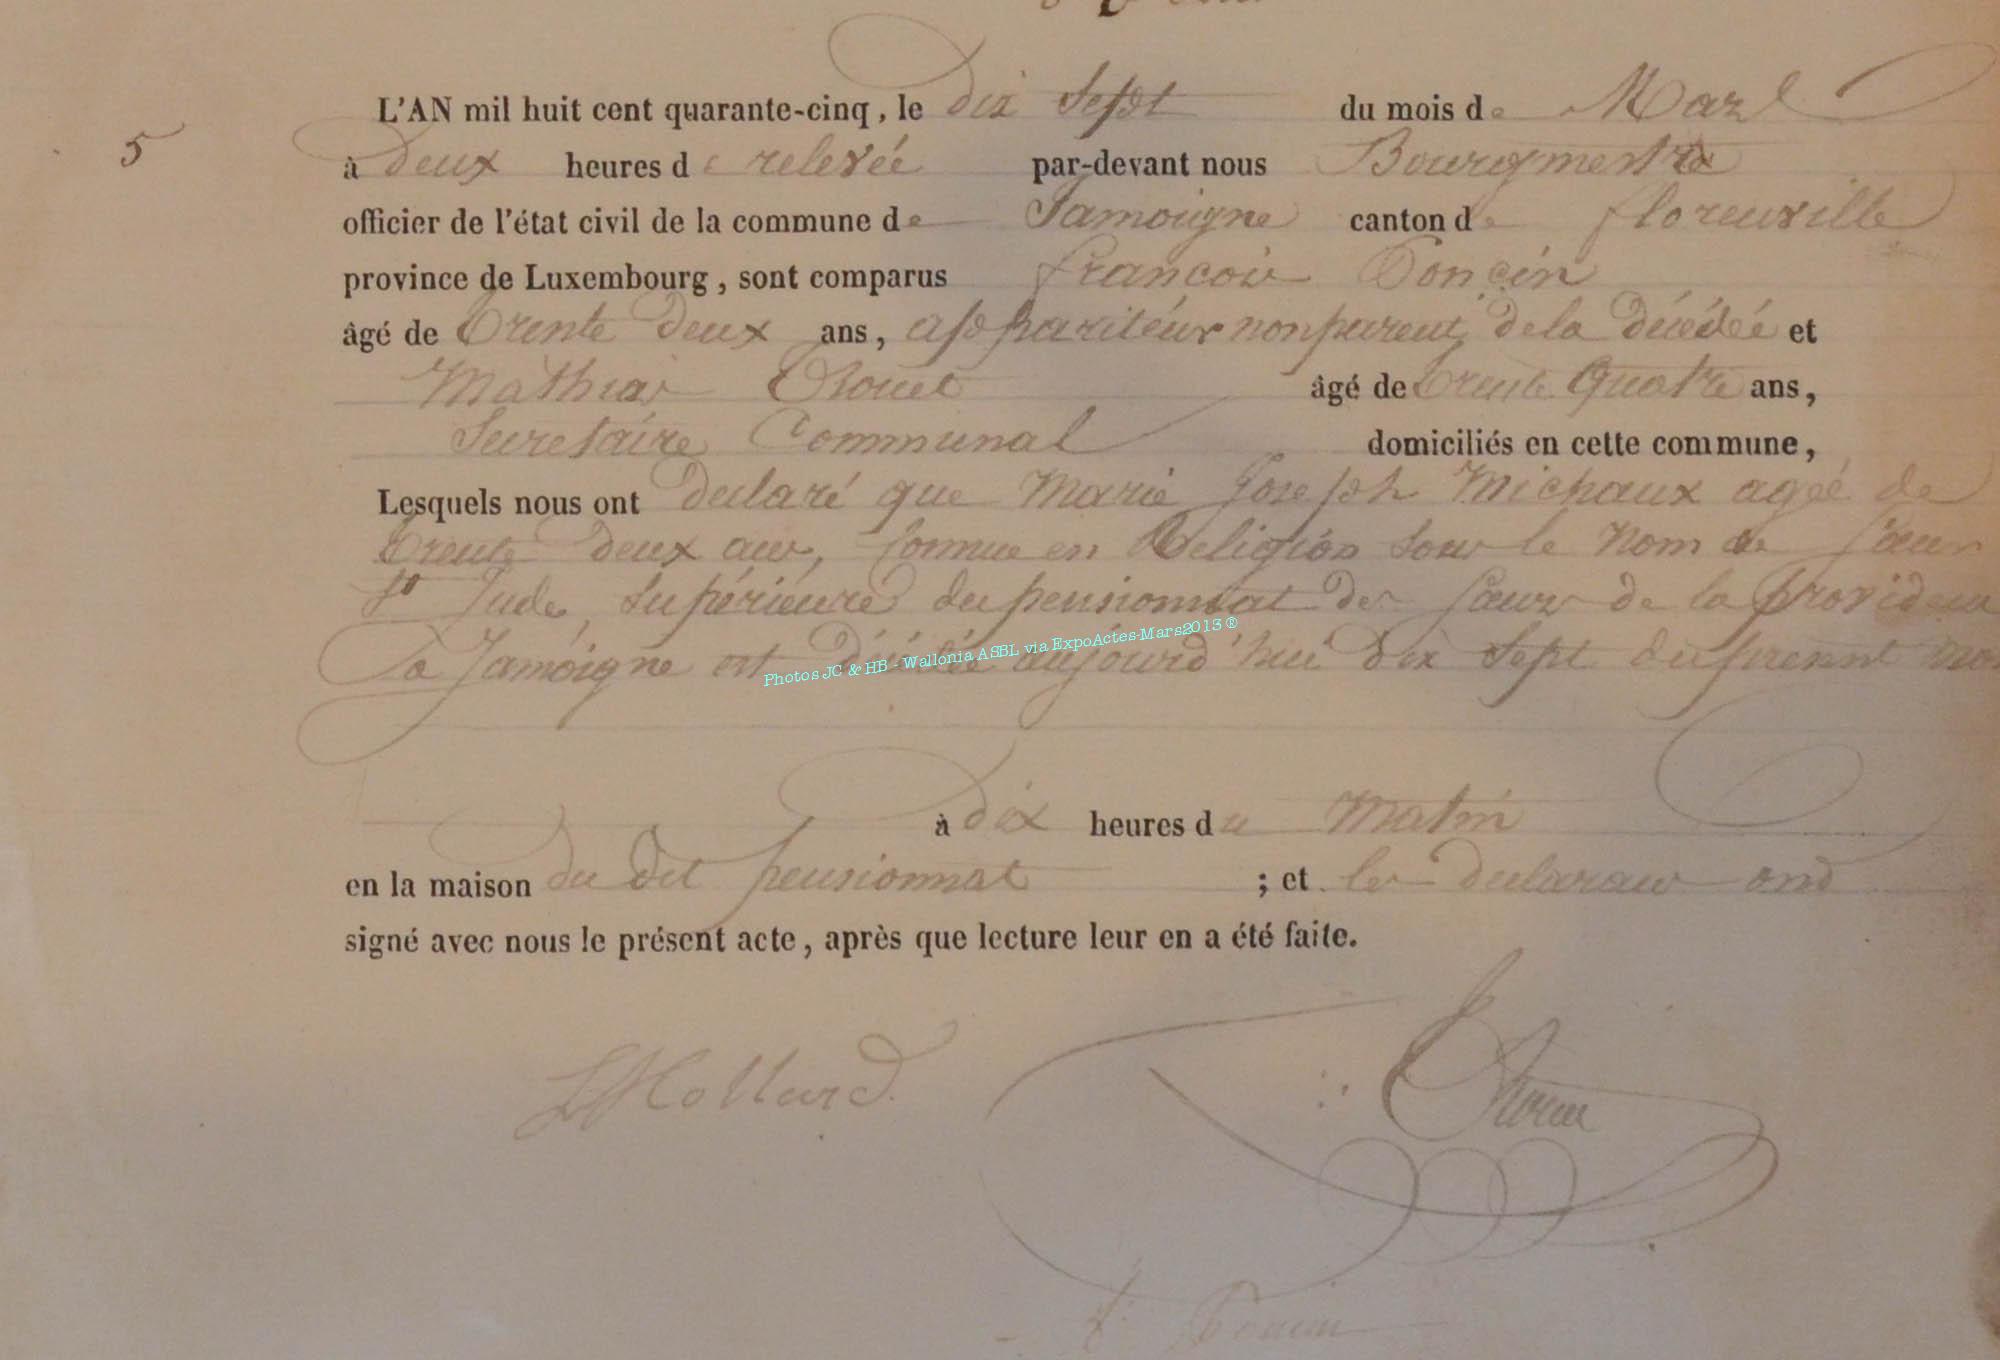 L'AN mil huit cent quarante-cinq, le dix Sept du mois de Mars
5
à deux heures de relevée par-devant nous Bourgmestre
officier de l'état civil de la commune de Jamoigne canton de florenville
province de Luxembourg, sont comparus françois Ponçin
âgé de trente deux ans, appariteur non parent de la décédée et
Mathias âgé de trente Quatre ans,
Secretaire Communal domiciliés en cette commune,
Lesquels nous ont declaré que Marie Joseph Michaux agée de
trente deux ans, Connue en Religion sous le Nom de Sœur
St Jude, Supérieure du pensionnat des Sœurs de la providence
de Jamoigne est décédée aujourd'hui dix Sept du present
Photos JC & HB - Wallonia ASBL via ExpoActes-Mars2013 ®
à dix heures du Matin
en la maison du dit pensionnat ; et les declarans ont
signé avec nous le présent acte, après que lecture leur en a été faite.
LHollard